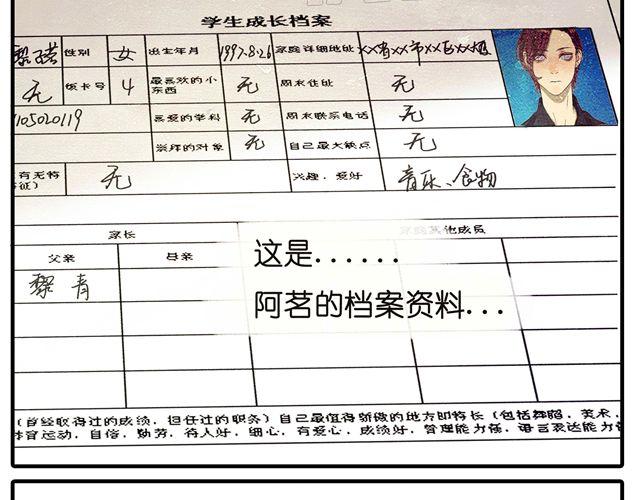 学生成长档案
性别 女 出生年月 1997.8.26 家庭详细地址 XX省XX市XX区XX
无 饭卡号 4 最喜欢的小东西 无 周末住址 无
105020119 喜爱的学科 无 周末联系电话 无
崇拜的对象 无 自己最大缺点 无
有无特 无 兴趣、爱好 音乐、食物
家长
父亲 母亲
黎青
这是......
阿茗的档案资料...
(曾经取得过的成绩,担任过的职务)自己最值得骄傲的地方即特长(包括舞蹈,美术,
体育运动,自信,勤劳,待人好,细心,有爱心,成绩好,管理能力强,语言表达能力